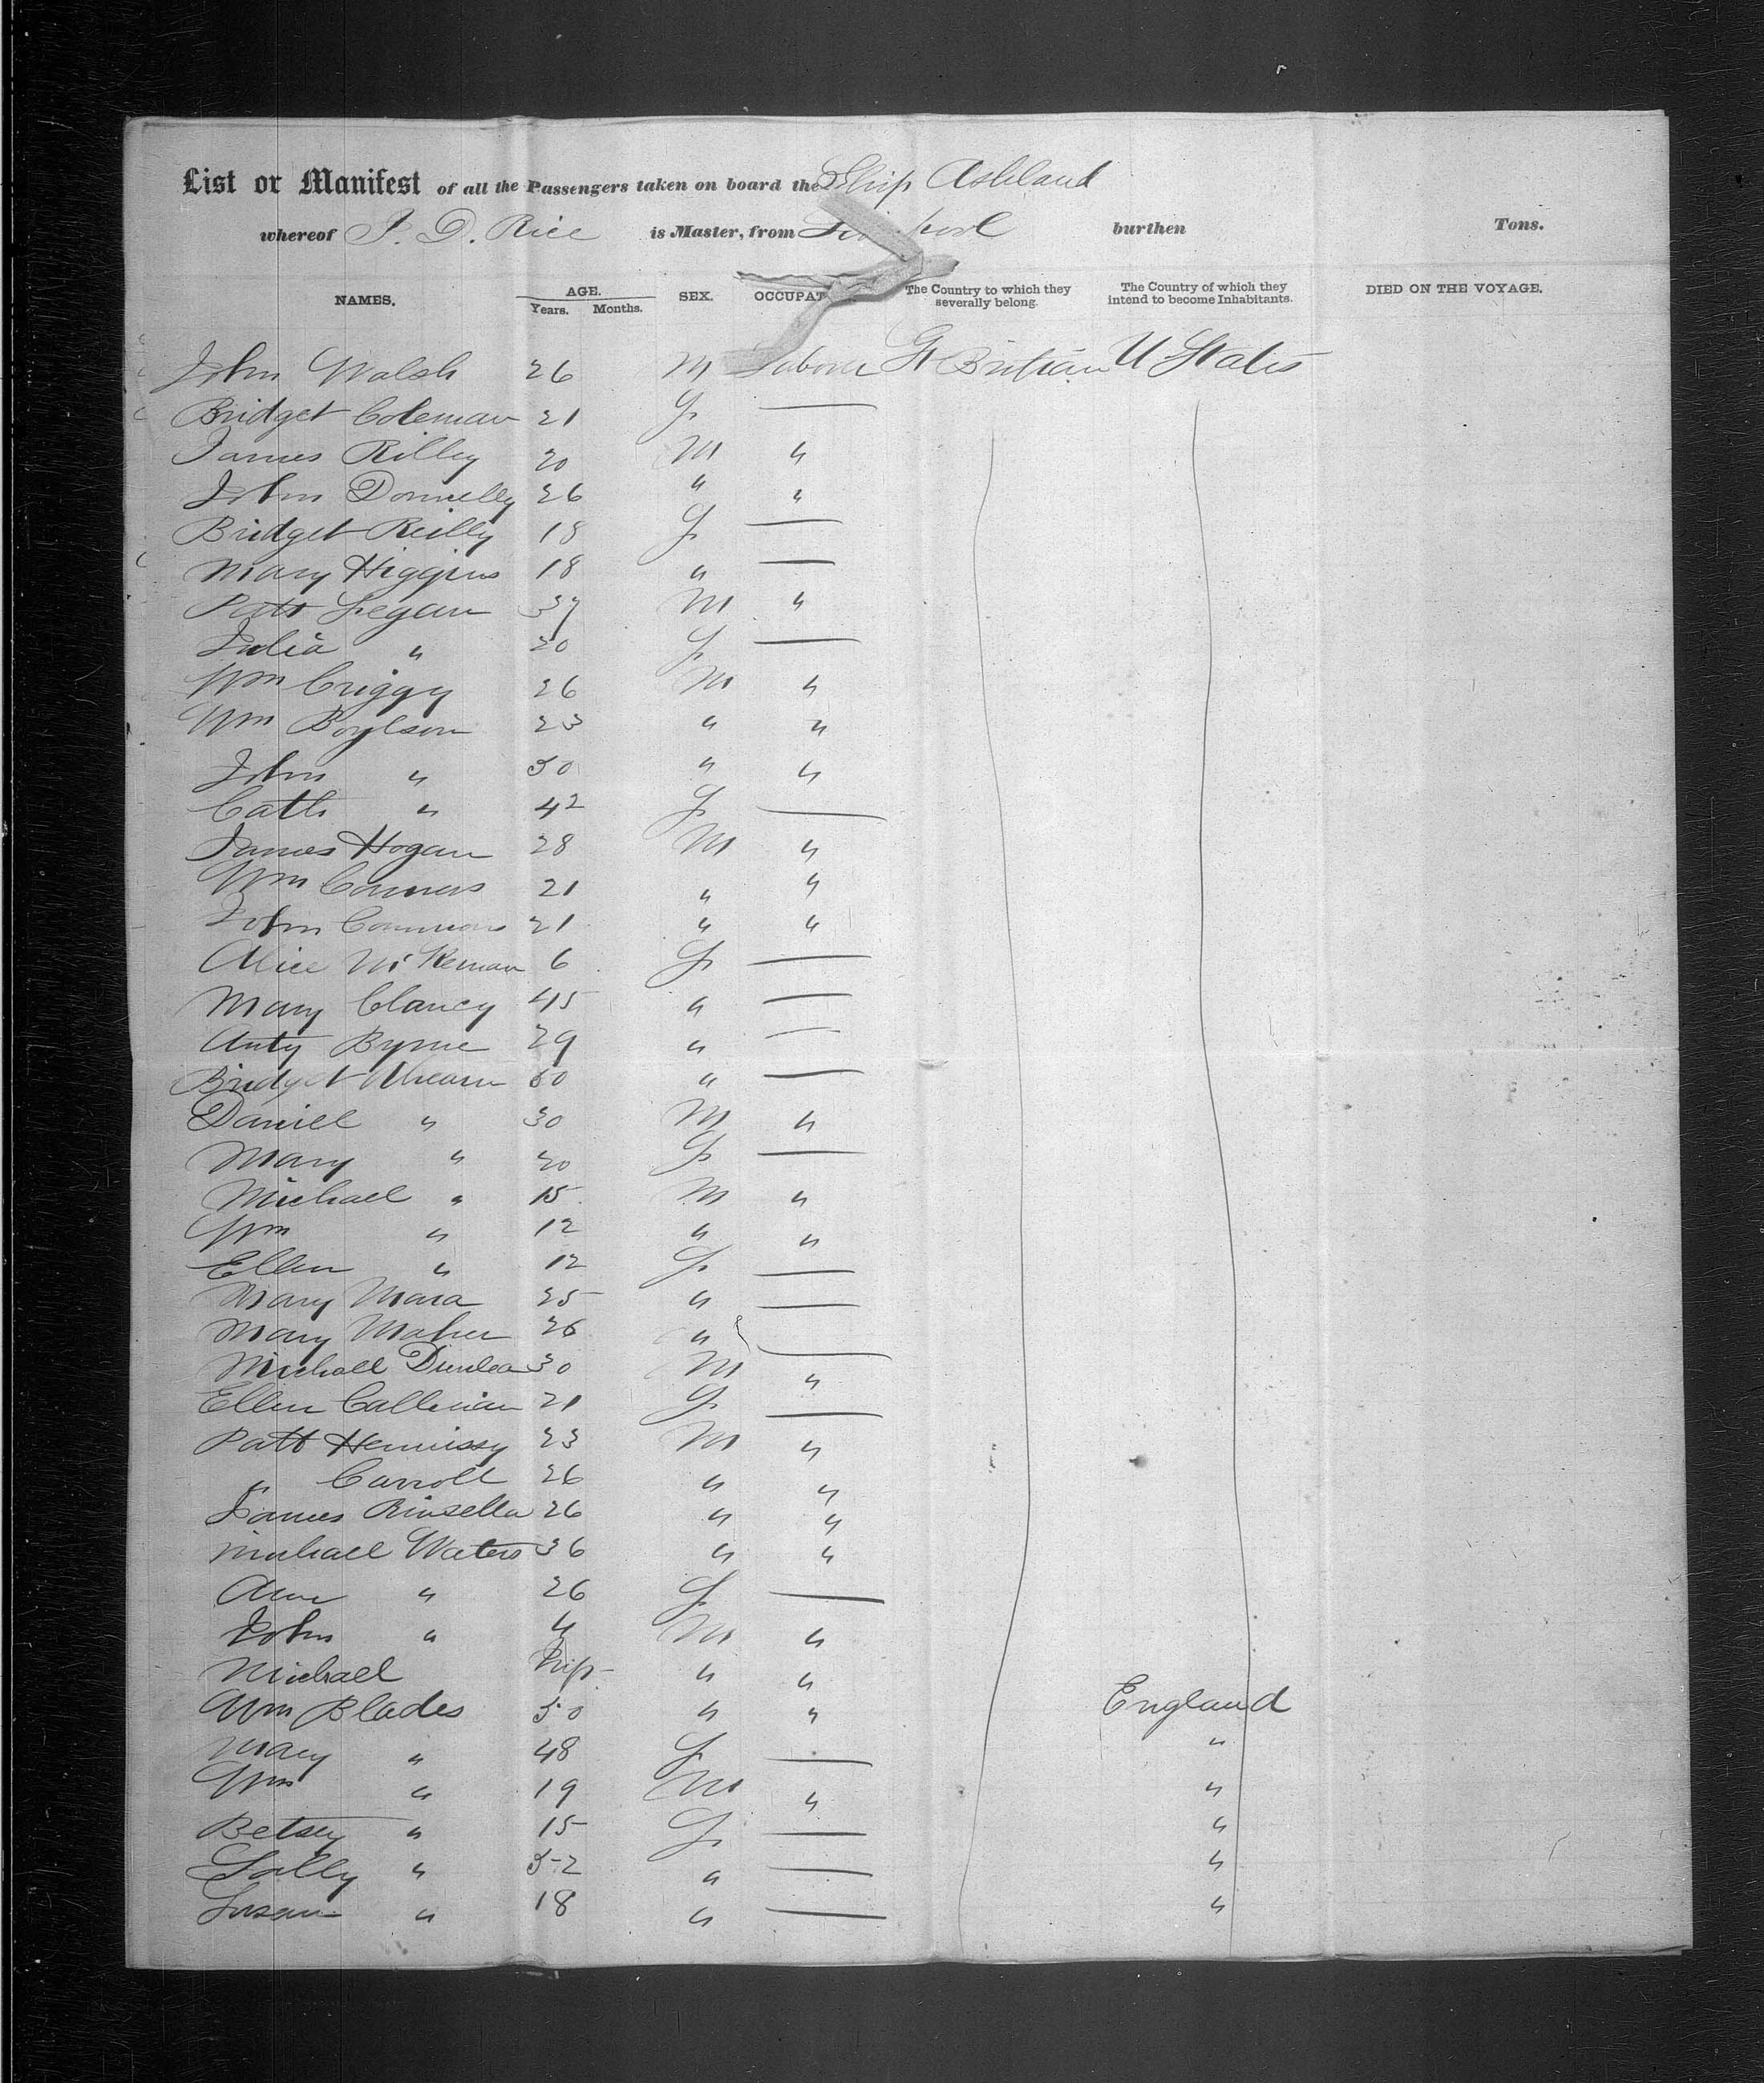 List or Manifest of all the Passengers taken on board the Ship Ashland
whereof J. D. Rice is Master, from Liv pool burthen Tons.
NAMES. AGE. Years. Months. SEX. OCCUPAT The Country to which they severally belong. The Country of which they intend to become Inhabitants. DIED ON THE VOYAGE.
John Walsh 26 M Laborer Gt Britian U States
Bridget Coleman 21 F —
James Rilley 20 M "
John Donnelly 26 " "
Bridget Reilly 18 F —
Mary Higgins 18 " —
Patt Legan 37 M "
Julia " 20 F —
Wm Criggy 26 M "
Wm Boylson 23 " "
John " 50 " "
Cath " 42 F —
James Hogan 28 M "
Wm Connors 21 " "
John Connors 21 " "
Alice McKernan 6 F —
Mary Clancy 45 " —
Anty Byrne 29 " —
Bridget Ahearn 60 " —
Daniel " 30 M "
Mary " 20 F —
Michael " 15 M "
Wm " 12 " "
Ellen " 12 F —
Mary Mara 25 " —
Mary Maher 26 " —
Michael Dunlea 30 M "
Ellen Callinan 21 F —
Patt Hennissy 23 M "
" Carroll 26 " "
James Kinsella 26 " "
Michael Waters 36 " "
Ann " 26 F —
John " 4 M "
Michael " "
Wm Blades 50 " " England
Mary " 48 F — "
Wm " 19 M " "
Betsey " 15 F — "
Sally " 52 " — "
Susan " 18 " — "